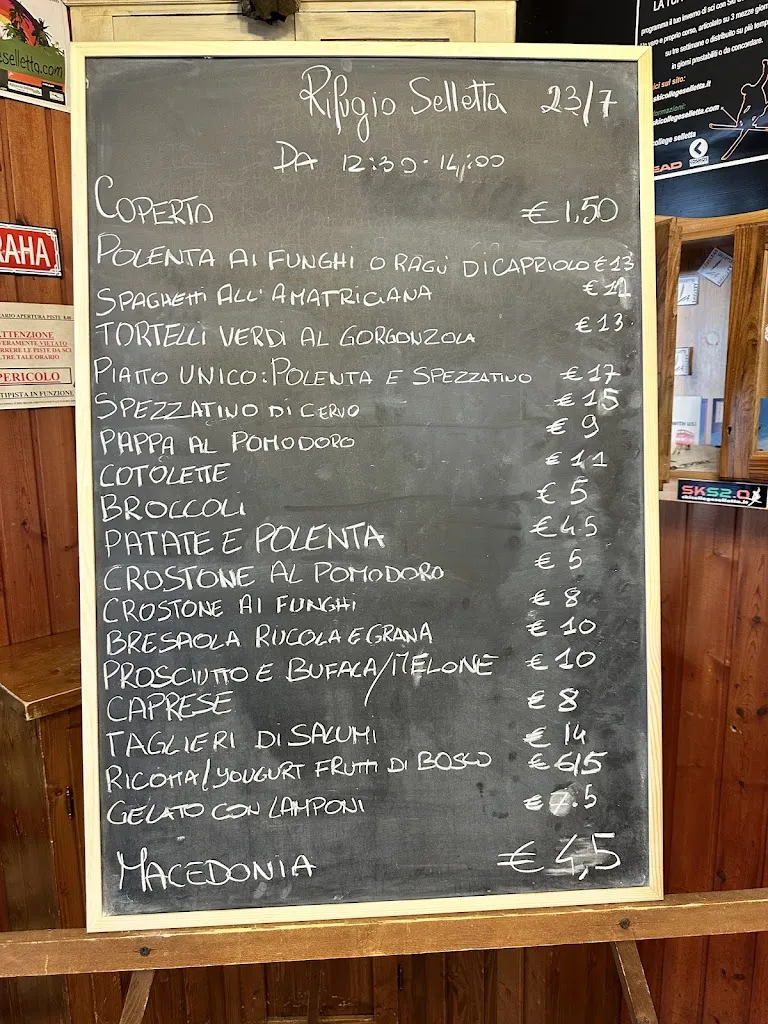 Rifugio Selletta 23/7
DA 12:30-14:00
COPERTO € 1,50
POLENTA AI FUNGHI O RAGÙ DI CAPRIOLO € 13
SPAGHETTI ALL'AMATRICIANA € 11
TORTELLI VERDI AL GORGONZOLA € 13
PIATTO UNICO: POLENTA E SPEZZATINO € 17
SPEZZATINO DI CERVO € 15
PAPPA AL POMODORO € 9
COTOLETTE € 11
BROCCOLI € 5
PATATE E POLENTA € 4.5
CROSTONE AL POMODORO € 5
CROSTONE AI FUNGHI € 8
BRESAOLA RUCOLA E GRANA € 10
PROSCIUTTO E BUFALA/MELONE € 10
CAPRESE € 8
TAGLIERI DI SALUMI € 14
RICOTTA/YOUGURT FRUTTI DI BOSCO € 6/5
GELATO CON LAMPONI € 7.5
MACEDONIA € 4,5
selletta.com
RAHA
ARIO APERTURA PISTE
ATTENZIONE
VERAMENTE VIETATO
RRERE LE PISTE DA SCI
LTRE TALE ORARIO
PERICOLO
TIPISTA IN FUNZIONE
programma il tuo inverno di sci con
vero e proprio corso, articolato su 3 mezze
su tre settimane o distribuito su più
in giorni prestabiliti o da concordare.
ci sul sito:
skicollegeselletta.it
formazioni:
skicollegeselletta.com
college selletta
SKS2.0
skicollegeselletta.it